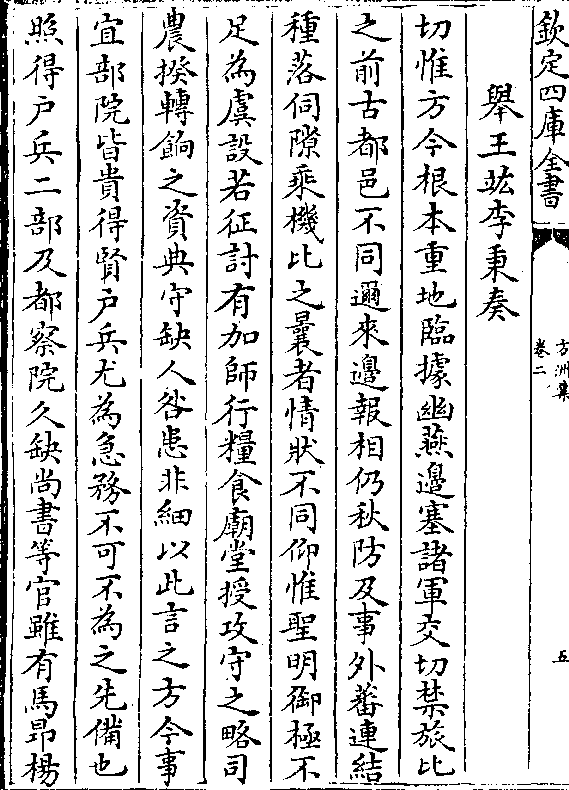 欽定四庫全書
方洲集
卷二
五
舉王竑李秉奏
切惟方今根本重地臨據幽燕邊塞諸軍交切禁旅比
之前古都邑不同邇來邊報相仍秋防及事外蕃連結
種落伺隙乘機比之曩者情狀不同仰惟聖明御極不
足為虞設若征討有加師行糧食廟堂授攻守之略司
農揆轉餉之資典守缺人咎患非細以此言之方今事
宜部院皆貴得賢户兵尤為急務不可不為之先備也
照得户兵二部及都察院久缺尚書等官雖有馬昂楊